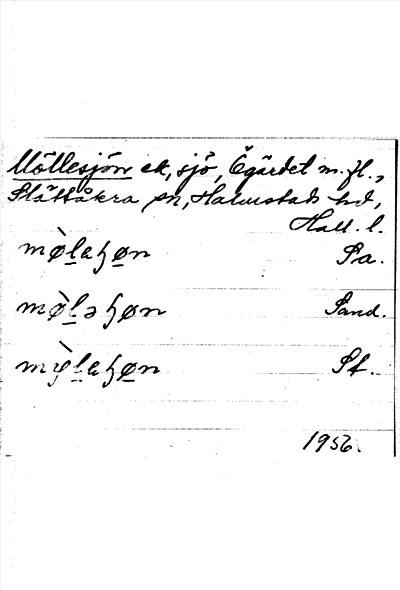 Möllesjön ek, sjö, Ögärdet m.fl.,
Slättåkra sn, Halmstads hd,
Hall. l.
mø̀laɧøn Sa.
mø̀ləɧøn Sand.
mø̀laɧøn St.
1956.